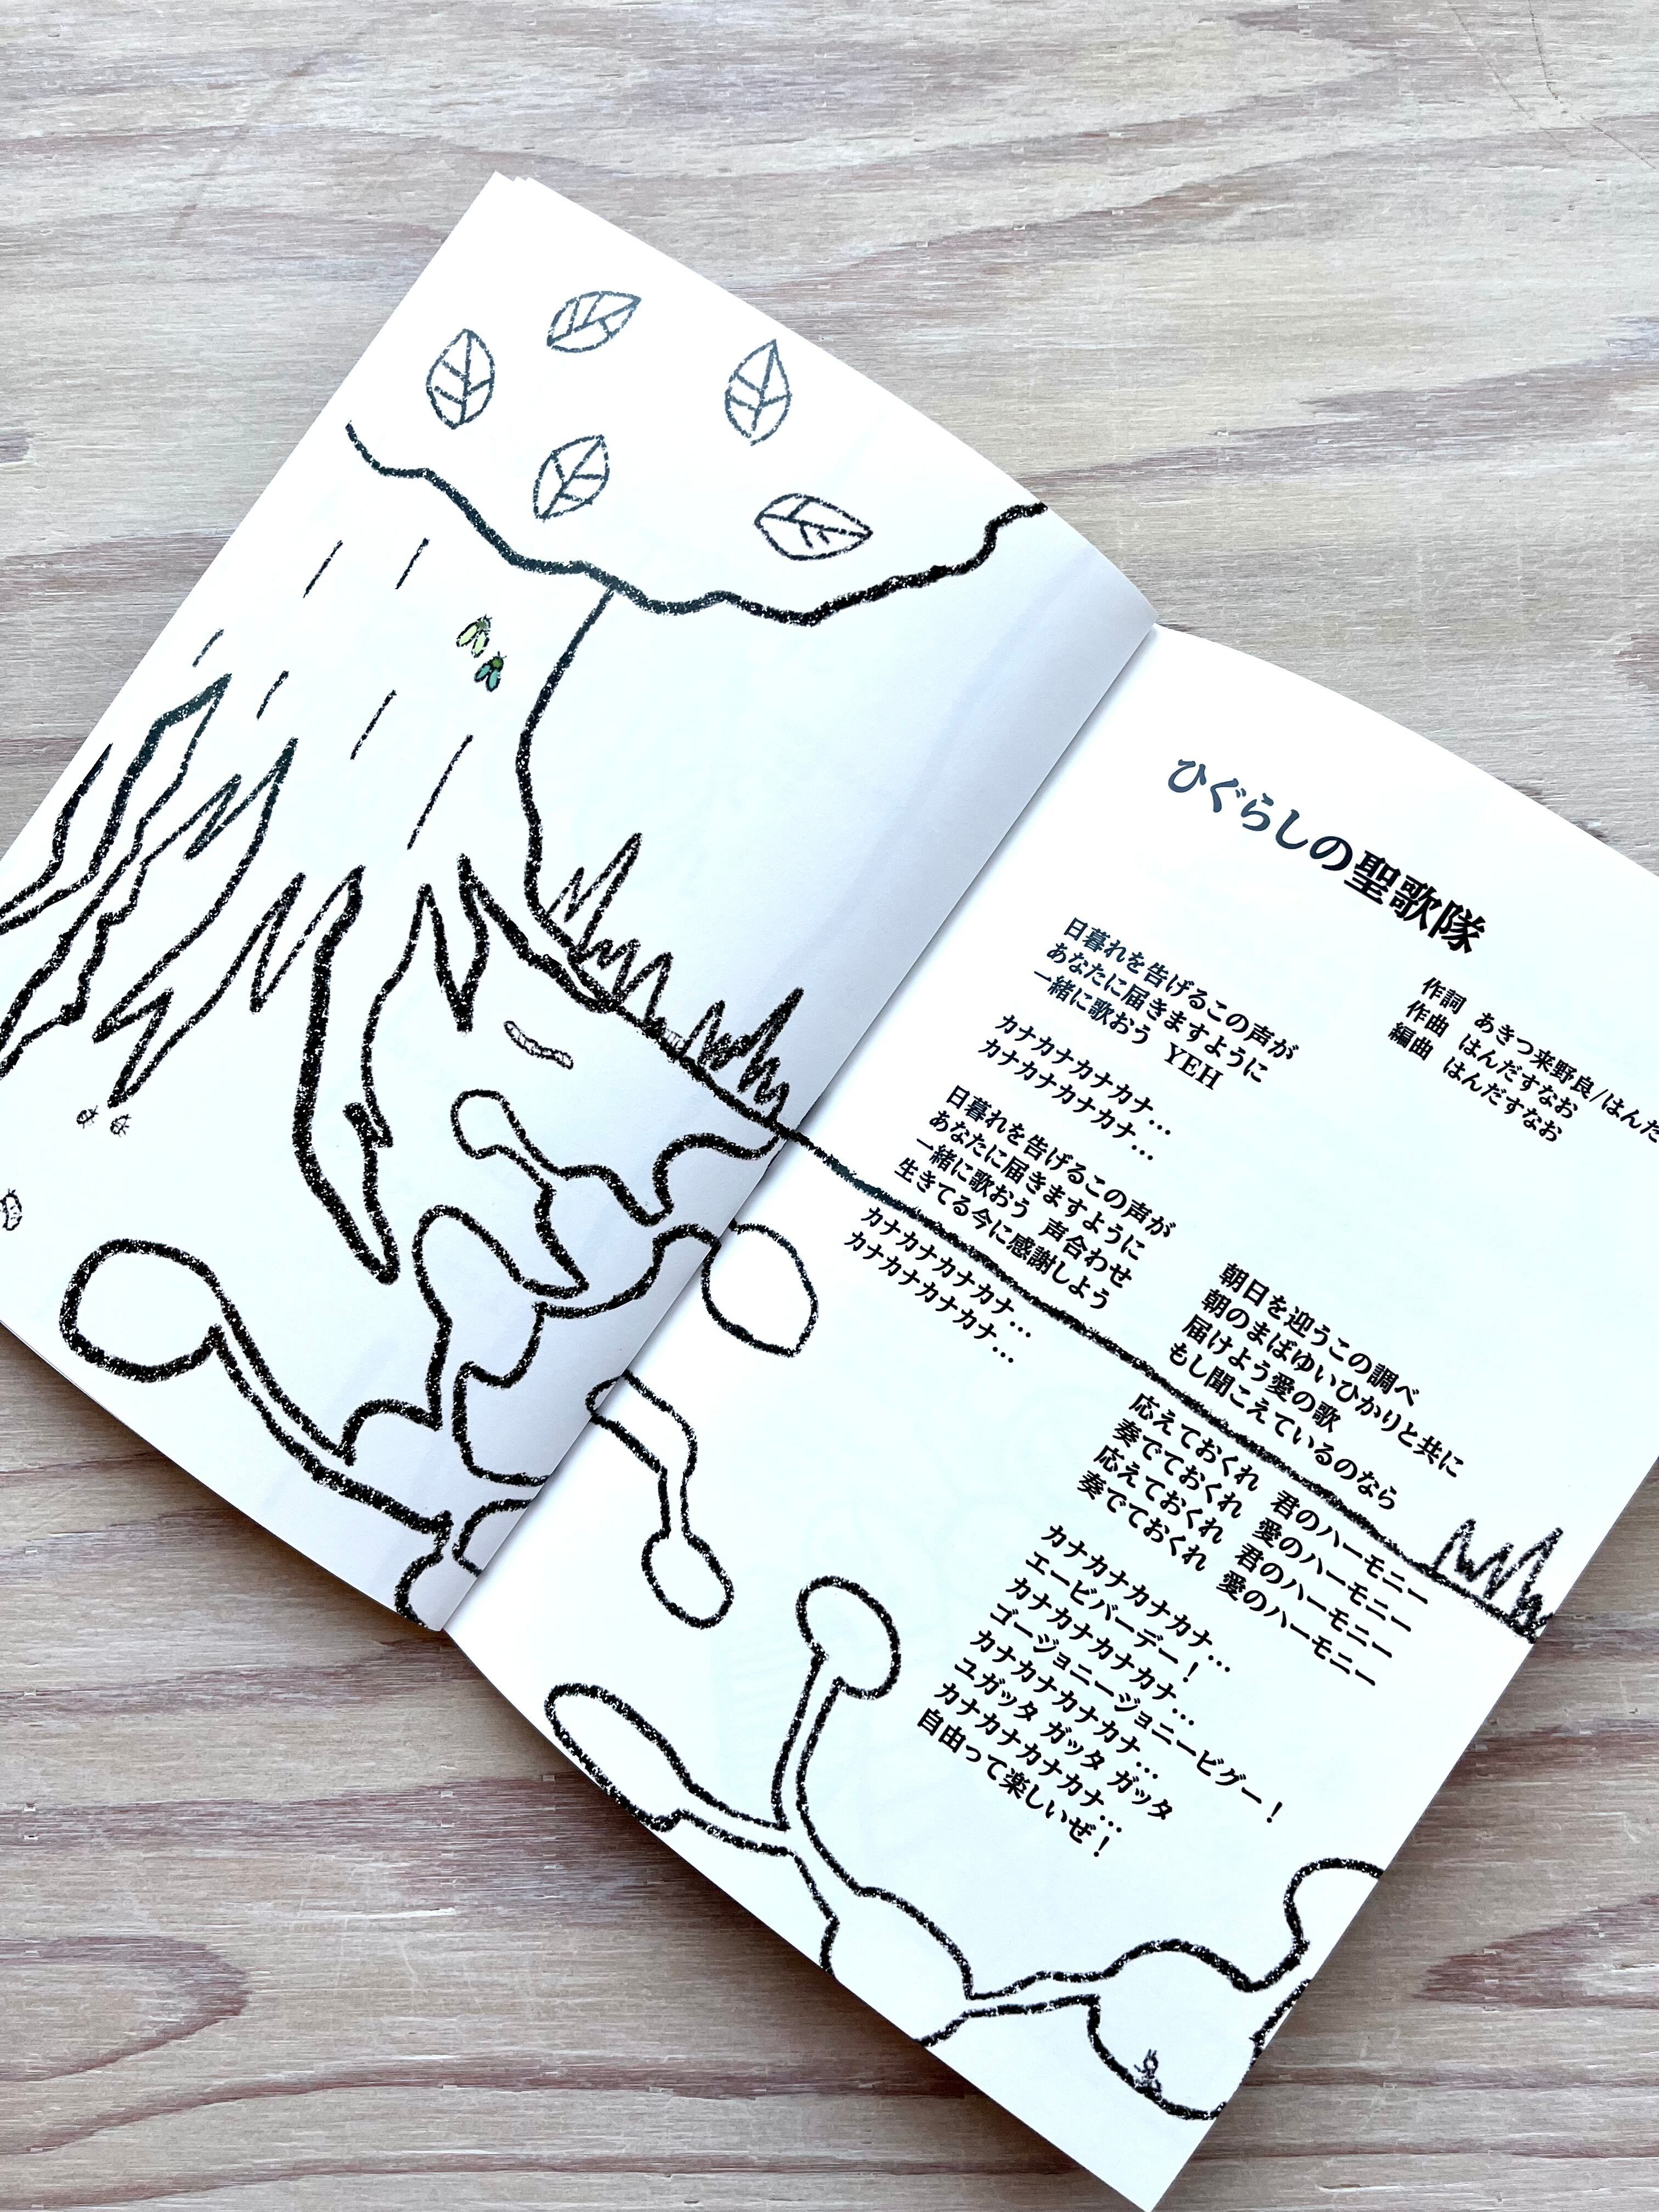 ひぐらしの聖歌隊
作詞 あきつ来野良/はんだ
作曲 はんだすなお
編曲 はんだすなお
日暮れを告げるこの声が
あなたに届きますように
一緒に歌おう YEH
カナカナカナカナ…
カナカナカナカナ…
日暮れを告げるこの声が
あなたに届きますように
一緒に歌おう 声合わせ
生きてる今に感謝しよう
カナカナカナカナ…
カナカナカナカナ…
朝日を迎うこの調べ
朝のまばゆいひかりと共に
届けよう愛の歌
もし聞こえているのなら
応えておくれ 君のハーモニー
奏でておくれ 愛のハーモニー
応えておくれ 君のハーモニー
奏でておくれ 愛のハーモニー
カナカナカナカナ…
エービバーデー！
カナカナカナカナ…
ゴージョニージョニービグー！
カナカナカナカナ…
ユガッタ ガッタ ガッタ
カナカナカナカナ…
自由って楽しいぜ！